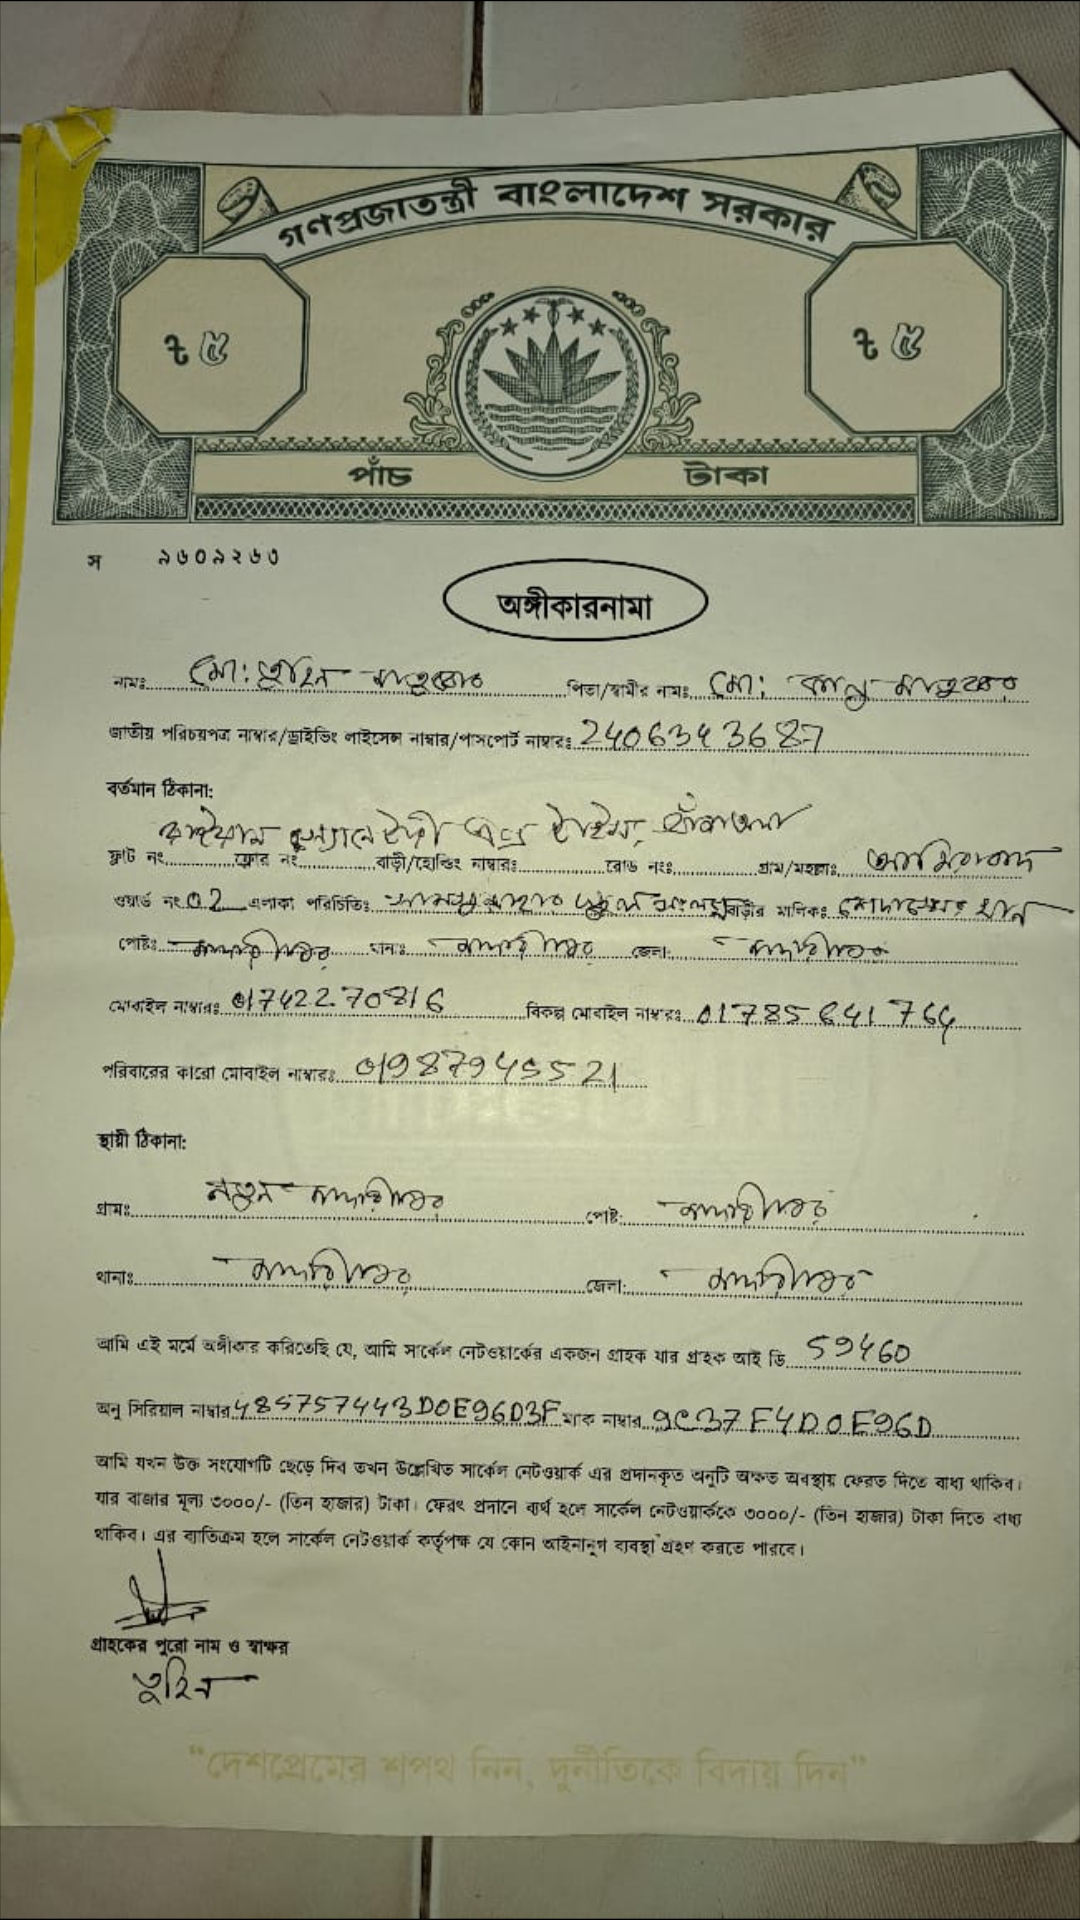 গণপ্রজাতন্ত্রী বাংলাদেশ সরকার
৳ ৫ ৳ ৫
পাঁচ টাকা
স ৯৬০৯২৬৩
অঙ্গীকারনামা
নামঃ মো: তুহিন মাতুব্বর পিতা/স্বামীর নামঃ মো: কালু মাতুব্বর
জাতীয় পরিচয়পত্র নাম্বার/ড্রাইভিং লাইসেন্স নাম্বার/পাসপোর্ট নাম্বারঃ 2406343687
বর্তমান ঠিকানা:
ফ্লাট নং ফ্লোর নং বাড়ী/হোল্ডিং নাম্বারঃ রোড নংঃ গ্রাম/মহল্লাঃ আমিরাবাদ
ওয়ার্ড নং 02 এলাকা পরিচিতিঃ স্কুল সংলগ্ন বাড়ীর মালিকঃ খান
পোষ্টঃ মাদারীপুর থানাঃ মাদারীপুর জেলা: মাদারীপুর
মোবাইল নাম্বারঃ 01742270816 বিকল্প মোবাইল নাম্বারঃ 01785641764
পরিবারের কারো মোবাইল নাম্বারঃ 01987945521
স্থায়ী ঠিকানা:
গ্রামঃ নতুন মাদারীপুর পোষ্ট: মাদারীপুর
থানাঃ মাদারীপুর জেলা: মাদারীপুর
আমি এই মর্মে অঙ্গীকার করিতেছি যে, আমি সার্কেল নেটওয়ার্কের একজন গ্রাহক যার গ্রহক আই ডি 59460
অনু সিরিয়াল নাম্বার 485757443D0E96D3F ম্যাক নাম্বার 9C37F4D0E96D
আমি যখন উক্ত সংযোগটি ছেড়ে দিব তখন উল্লেখিত সার্কেল নেটওয়ার্ক এর প্রদানকৃত অনুটি অক্ষত অবস্থায় ফেরত দিতে বাধ্য থাকিব।
যার বাজার মূল্য ৩০০০/- (তিন হাজার) টাকা। ফেরৎ প্রদানে ব্যর্থ হলে সার্কেল নেটওয়ার্ককে ৩০০০/- (তিন হাজার) টাকা দিতে বাধ্য
থাকিব। এর ব্যতিক্রম হলে সার্কেল নেটওয়ার্ক কর্তৃপক্ষ যে কোন আইনানুগ ব্যবস্থা গ্রহণ করতে পারবে।
গ্রাহকের পুরো নাম ও স্বাক্ষর
তুহিন
"দেশপ্রেমের শপথ নিন, দুর্নীতিকে বিদায় দিন"